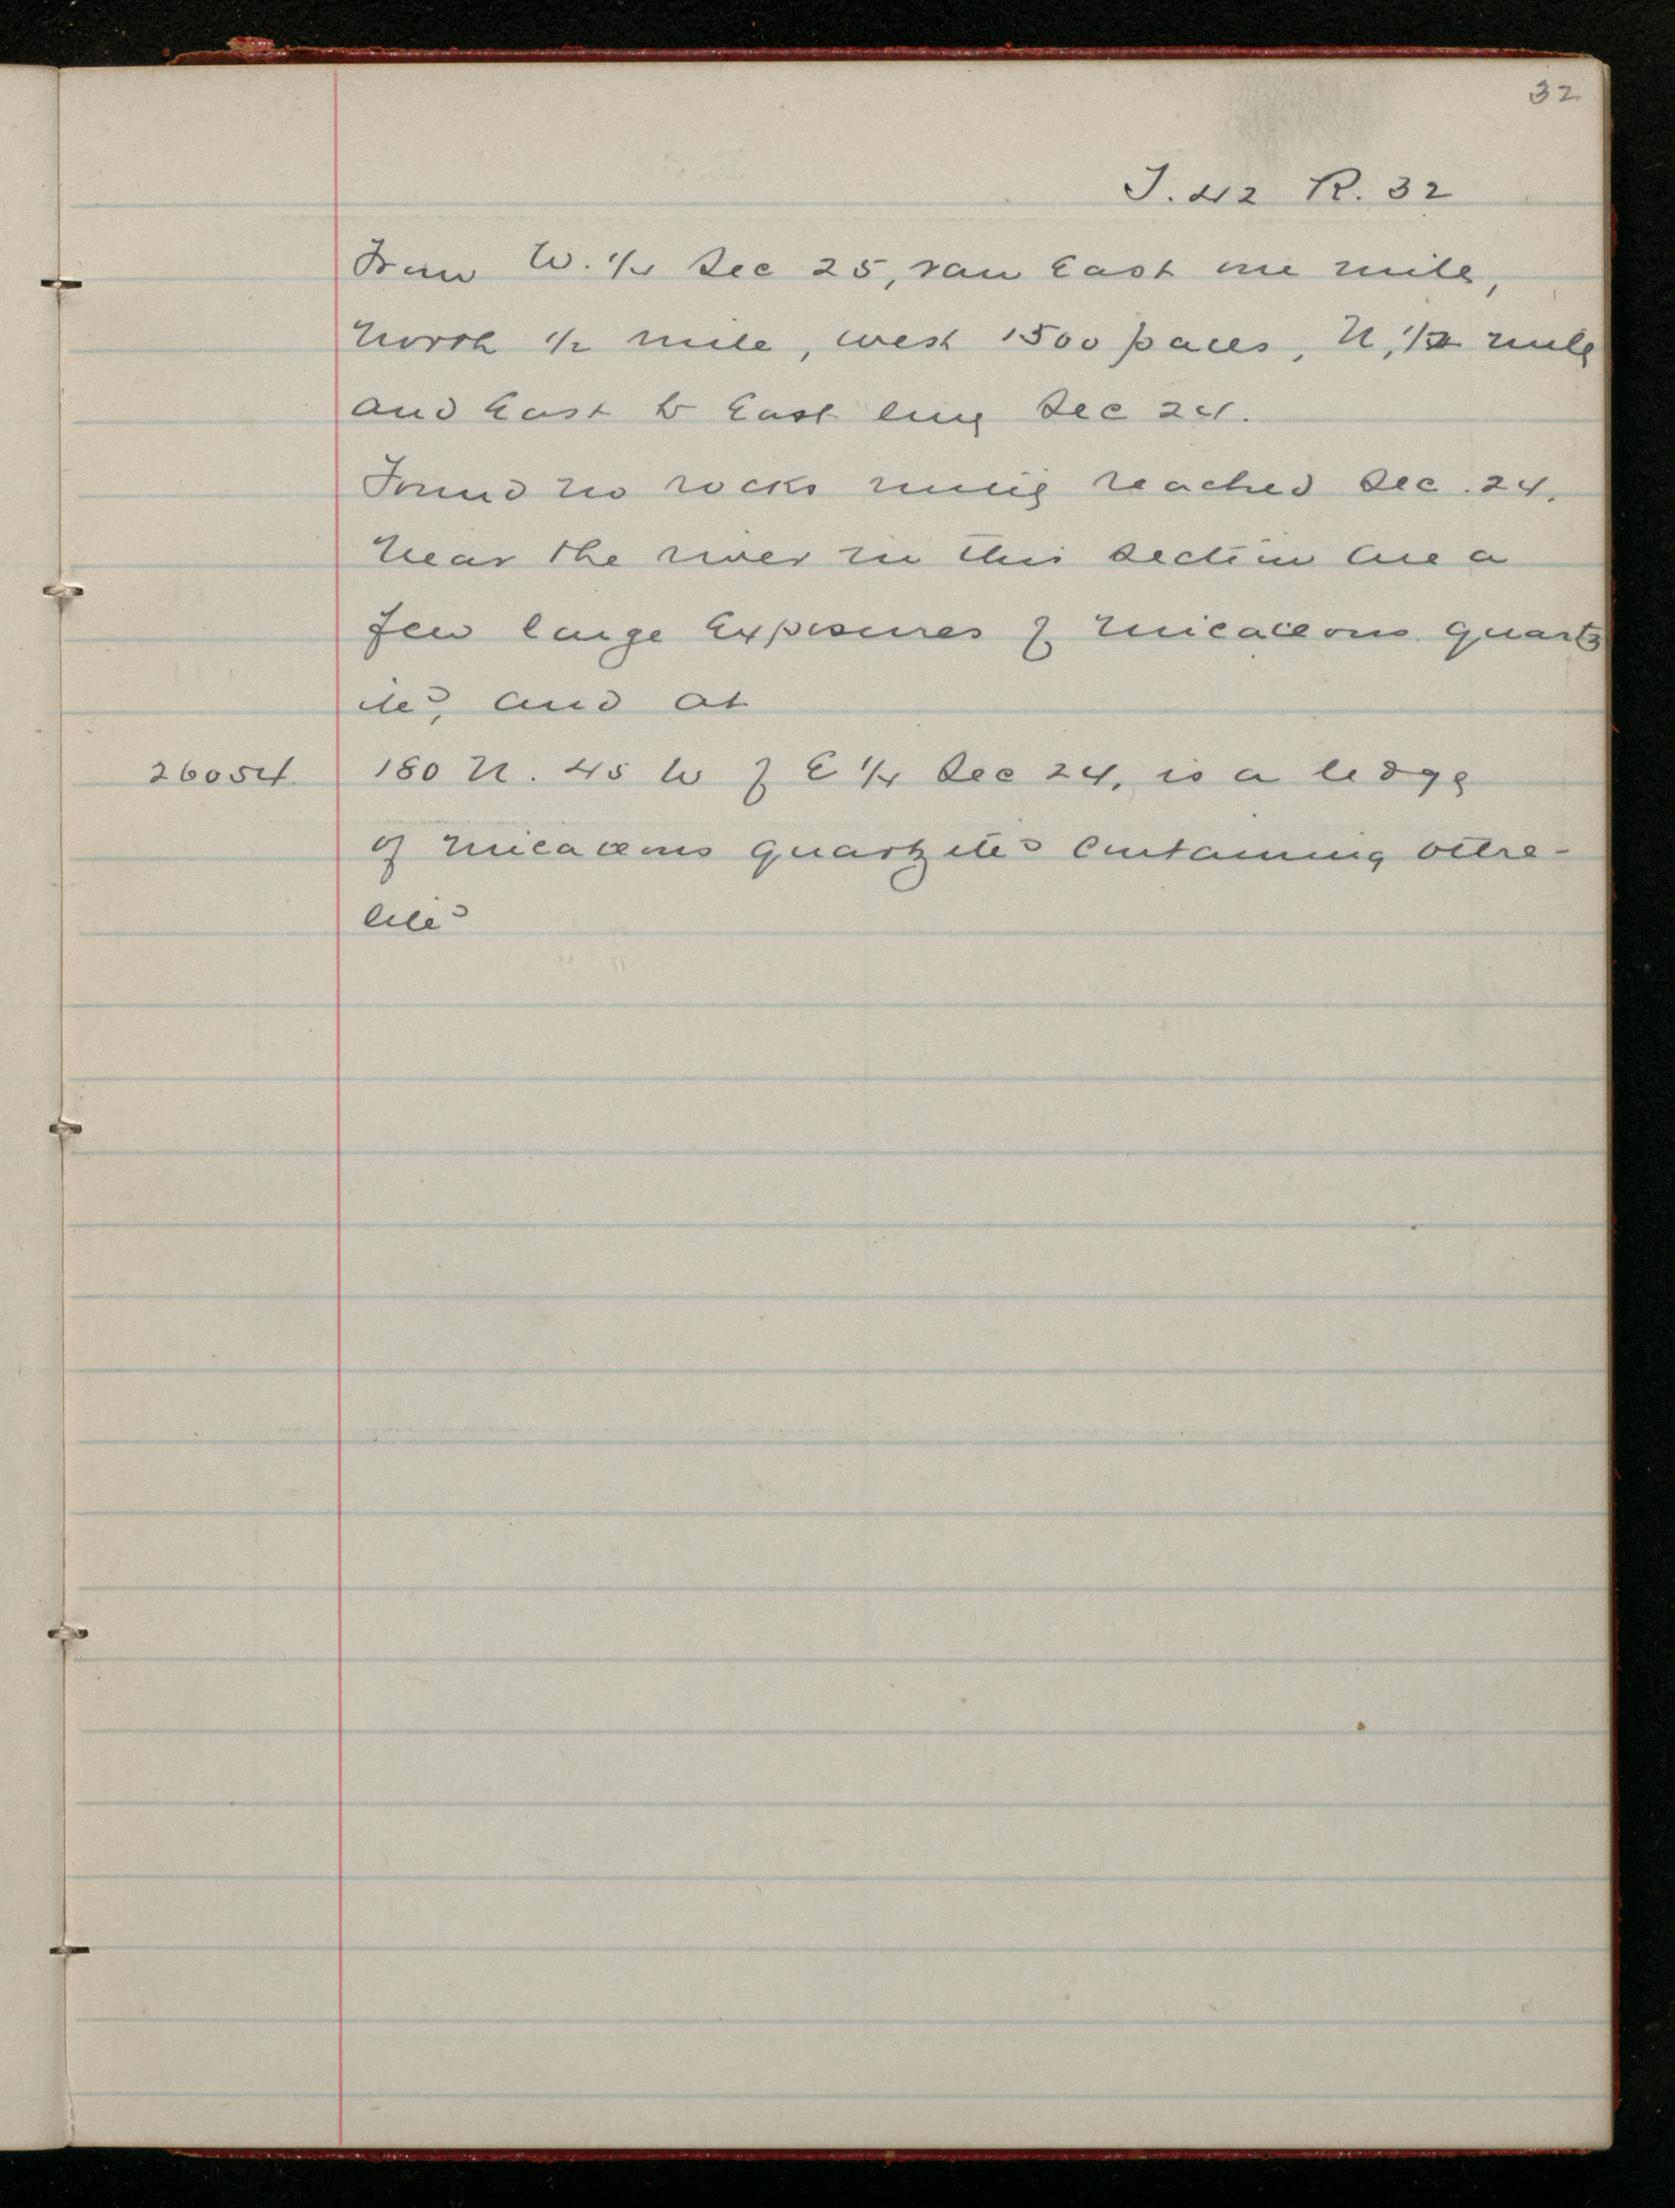 32
T. 42 R. 32
From W. 1/4 Sec 25, ran East one mile,
North 1/2 mile, west 1500 paces, N, 1/2 mile
and East to East line Sec 24.
Found no rocks until reached Sec. 24.
Near the river in this section are a
few large Exposures of micaceous quartz
ite, and at
26054 180 N. 45 W of E 1/4 Sec 24, is a ledge
of micaceous quartzite containing ottre-
lite